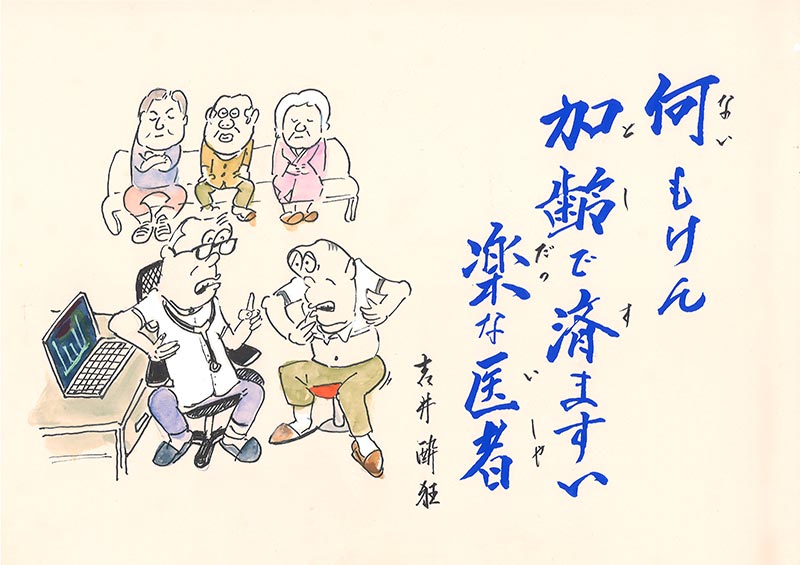 何もけん
ない
加齢で済ますい
とし す
楽な医者
だっ いしゃ
吉井酔狂